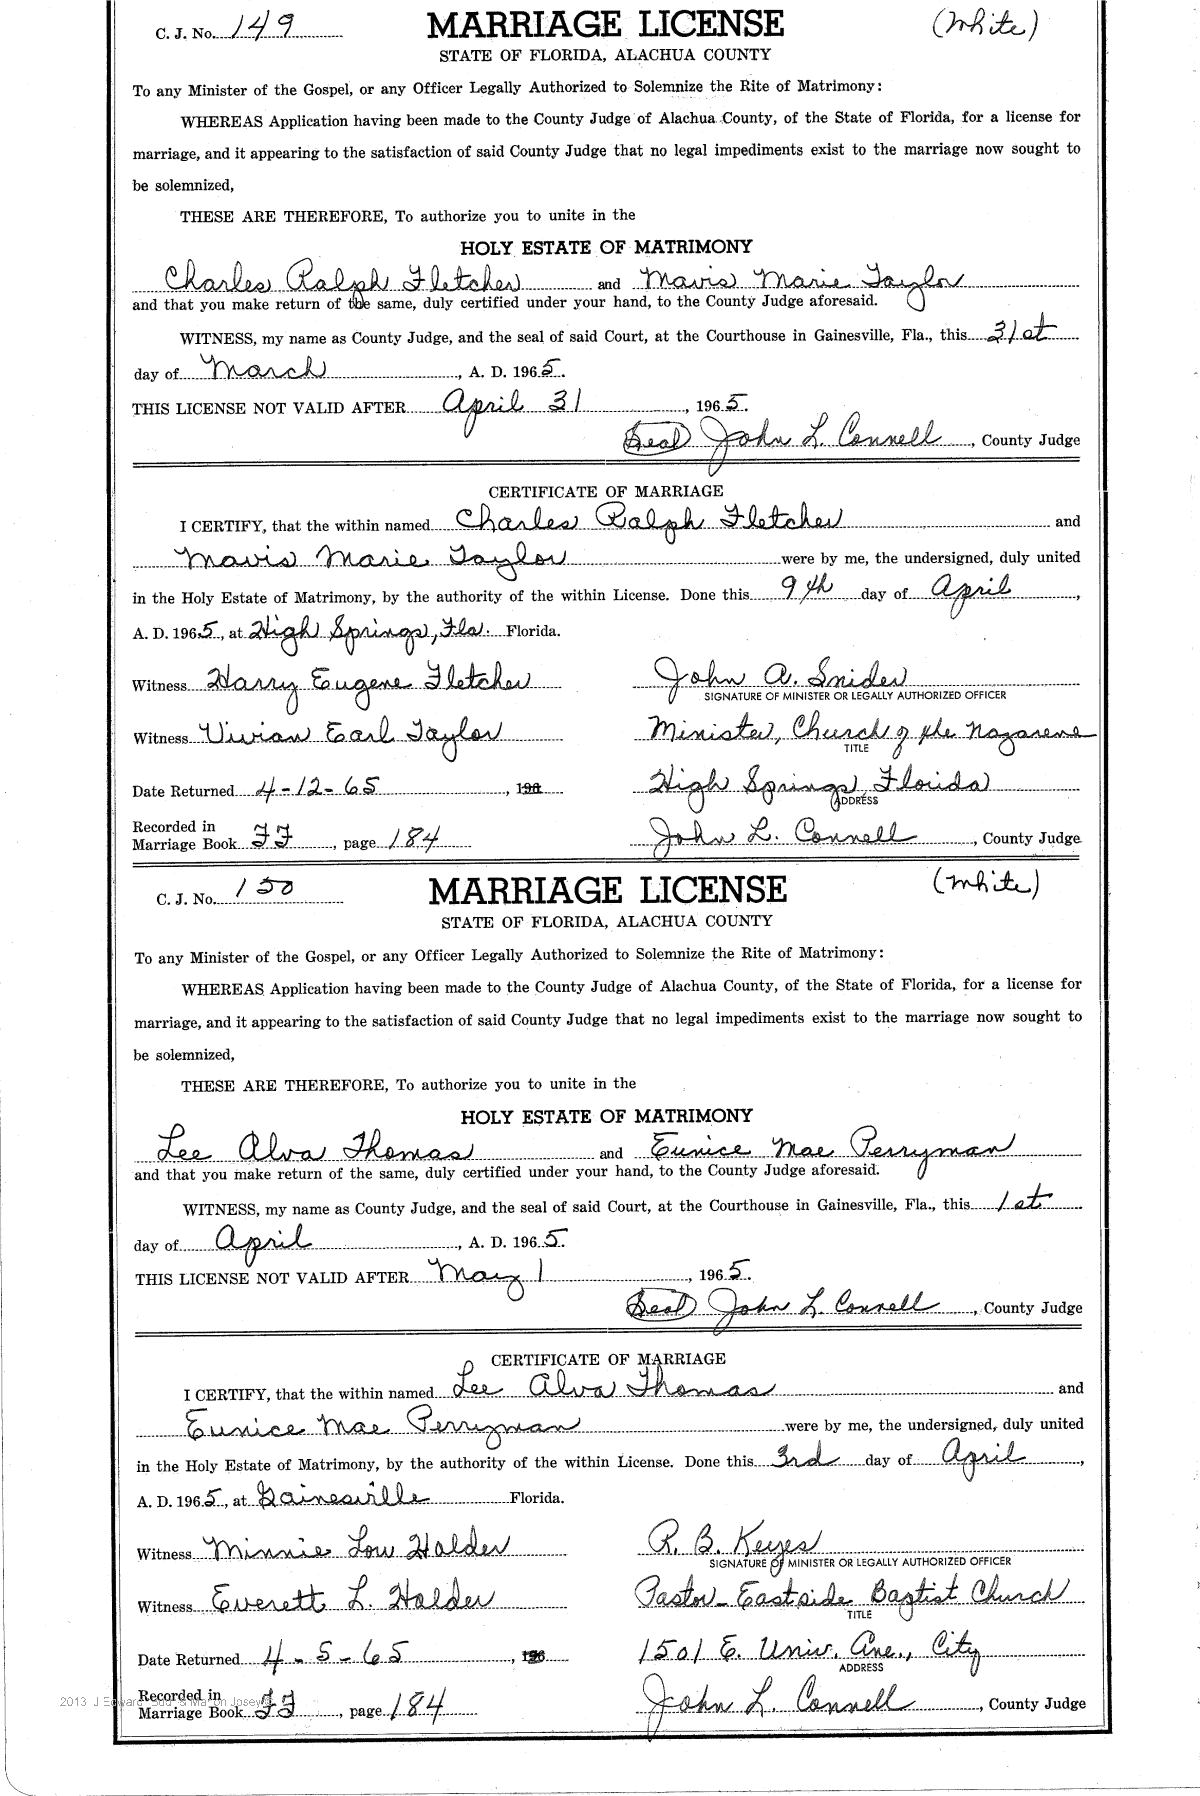 C. J. No. 149 MARRIAGE LICENSE (White)
STATE OF FLORIDA, ALACHUA COUNTY
To any Minister of the Gospel, or any Officer Legally Authorized to Solemnize the Rite of Matrimony:
WHEREAS Application having been made to the County Judge of Alachua County, of the State of Florida, for a license for
marriage, and it appearing to the satisfaction of said County Judge that no legal impediments exist to the marriage now sought to
be solemnized,
THESE ARE THEREFORE, To authorize you to unite in the
HOLY ESTATE OF MATRIMONY
Charles Ralph Fletcher and Mavis Marie Taylor
and that you make return of the same, duly certified under your hand, to the County Judge aforesaid.
WITNESS, my name as County Judge, and the seal of said Court, at the Courthouse in Gainesville, Fla., this 31st
day of March, A. D. 1965.
THIS LICENSE NOT VALID AFTER April 31, 1965.
(Seal) John L. Connell, County Judge
CERTIFICATE OF MARRIAGE
I CERTIFY, that the within named Charles Ralph Fletcher and
Mavis Marie Taylor were by me, the undersigned, duly united
in the Holy Estate of Matrimony, by the authority of the within License. Done this 9th day of April,
A. D. 1965, at High Springs, Fla. Florida.
Witness Harry Eugene Fletcher John A. Snider
SIGNATURE OF MINISTER OR LEGALLY AUTHORIZED OFFICER
Witness Vivian Earl Taylor Minister, Church of the Nazarene
TITLE
Date Returned 4-12-65, 196 High Springs, Florida
ADDRESS
Recorded in
Marriage Book FF, page 184 John L. Connell, County Judge
C. J. No. 150 MARRIAGE LICENSE (White)
STATE OF FLORIDA, ALACHUA COUNTY
To any Minister of the Gospel, or any Officer Legally Authorized to Solemnize the Rite of Matrimony:
WHEREAS Application having been made to the County Judge of Alachua County, of the State of Florida, for a license for
marriage, and it appearing to the satisfaction of said County Judge that no legal impediments exist to the marriage now sought to
be solemnized,
THESE ARE THEREFORE, To authorize you to unite in the
HOLY ESTATE OF MATRIMONY
Lee Alva Thomas and Eunice Mae Perryman
and that you make return of the same, duly certified under your hand, to the County Judge aforesaid.
WITNESS, my name as County Judge, and the seal of said Court, at the Courthouse in Gainesville, Fla., this 1st
day of April, A. D. 1965.
THIS LICENSE NOT VALID AFTER May 1, 1965.
(Seal) John L. Connell, County Judge
CERTIFICATE OF MARRIAGE
I CERTIFY, that the within named Lee Alva Thomas and
Eunice Mae Perryman were by me, the undersigned, duly united
in the Holy Estate of Matrimony, by the authority of the within License. Done this 3rd day of April,
A. D. 1965, at Gainesville Florida.
Witness Minnie Lou Halder R. B. Keyes
SIGNATURE OF MINISTER OR LEGALLY AUTHORIZED OFFICER
Witness Everett L. Halder Pastor - Eastside Baptist Church
TITLE
Date Returned 4-5-65, 196 1501 E. Univ. Ave., City
ADDRESS
Recorded in
Marriage Book FF, page 184 John L. Connell, County Judge
2013 J Edward